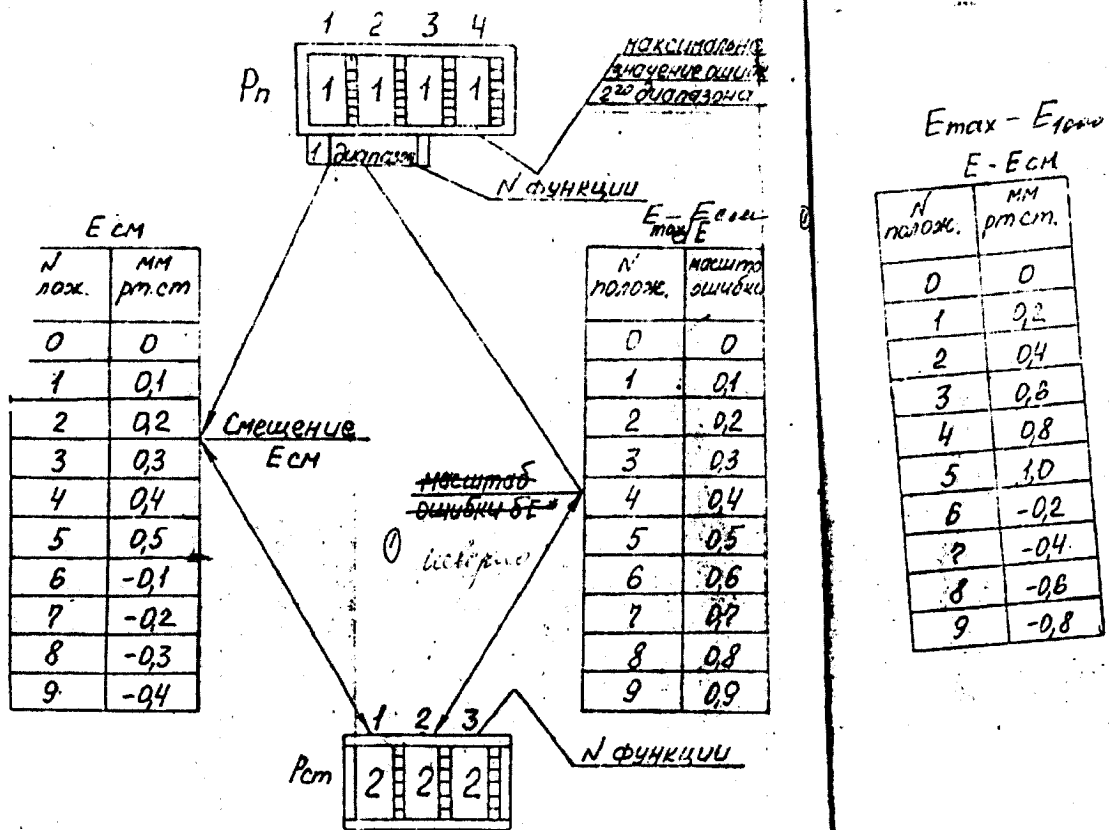 1 2 3 4
Рп
1 1 1 1
1 диапаз
значение ошиб
2го диапазона
N функции
Е см
N
лож.
мм
рт.ст
0 0
1 0,1
2 0,2
3 0,3
4 0,4
5 0,5
6 -0,1
7 -0,2
8 -0,3
9 -0,4
Смещение
Е см
масштаб
ошибки δЕ*
N
полож.
масшта
ошибки
0 0
1 0,1
2 0,2
3 0,3
4 0,4
5 0,5
6 0,6
7 0,7
8 0,8
9 0,9
1 2 3
Рст
2 2 2
N функции
Е - Е см
N
полож.
мм
рт ст.
0 0
1 0,2
2 0,4
3 0,6
4 0,8
5 1,0
6 -0,2
7 -0,4
8 -0,6
9 -0,8